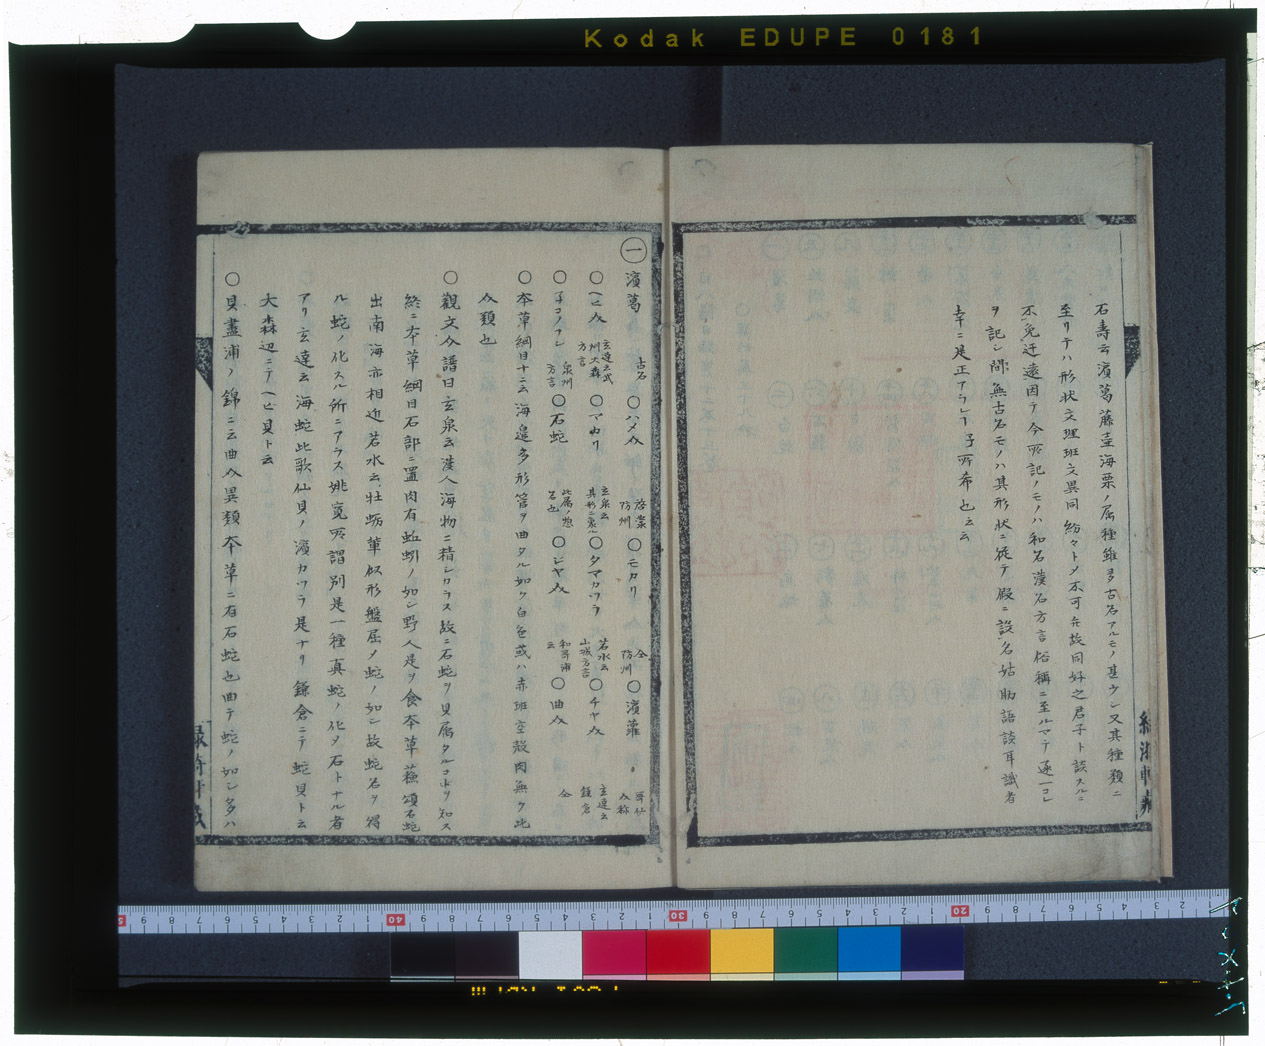 Kodak EDUPE 0181
石壽云濱葛藤壷海栗ノ属種雖多古名アルモノ甚ウシ又其種類ニ
至リテハ形状文理班文異同紛々トメ不可弁故同好之君子ト談スルニ
不免迂遠因テ今所記ノモノハ和名漢名方言俗稱ニ至ルマテ逐一コレ
ヲ記シ間無古名モノハ其形状ニ従テ假ニ設名姑助語談耳識者
幸ニ是正アラレヿ予所希也云云
一 濱葛 古名 ○ハメ介 啓蒙 防州 ○モカリ 仝 防州 ○濱蘿 介称
○ヘヒ介 玄達云武州大森方言 ○マカリ 玄泉云其形ニ象ル ○タマカツラ 若水云山城方言 ○チヤ介 玄達云鎌倉
○子コノフン 泉州方言 ○石蛇 此属ノ惣名也 ○シヤ介 和哥浦云 ○曲介 仝
○本草綱目十二云海邉多形管ヲ曲タル如ク白色或ハ赤班空殻肉無ク此
介類也
○觀文介譜曰玄泉云漢人海物ニ精シカラス故ニ石蛇ヲ貝属タルコトヲ知ス
終ニ本草綱目石部ニ置肉有蚯蚓ノ如シ野人是ヲ食本草蘓頌石蛇
出南海亦相近若水云牡蛎輩似形盤屈メ蛇ノ如シ故蛇名ヲ得
ル蛇ノ化スル所ニアラス姚寛所謂別是一種真蛇ノ化メ石トナル者
アリ玄達云海蛇此歌仙貝ノ濱カツラ是ナリ鎌倉ニテ蛇貝ト云
大森辺ニテヘヒ貝ト云
○貝盡浦ノ錦ニ云曲介異類本草ニ有石蛇也曲テ蛇ノ如シ多ハ